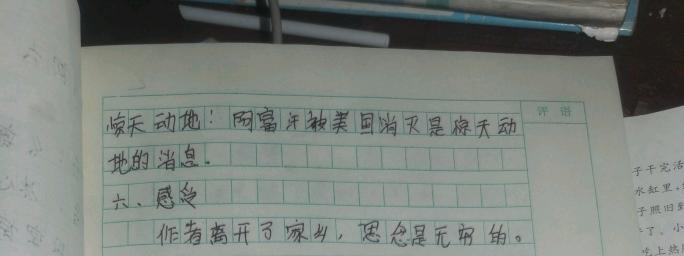 评语
惊天动地！阿富汗被美国消灭是惊天动
地的消息.
六、感受
作者离开了家乡，思念是无穷的。
子干完活
水缸里。
子照旧到
了。小
吃上热